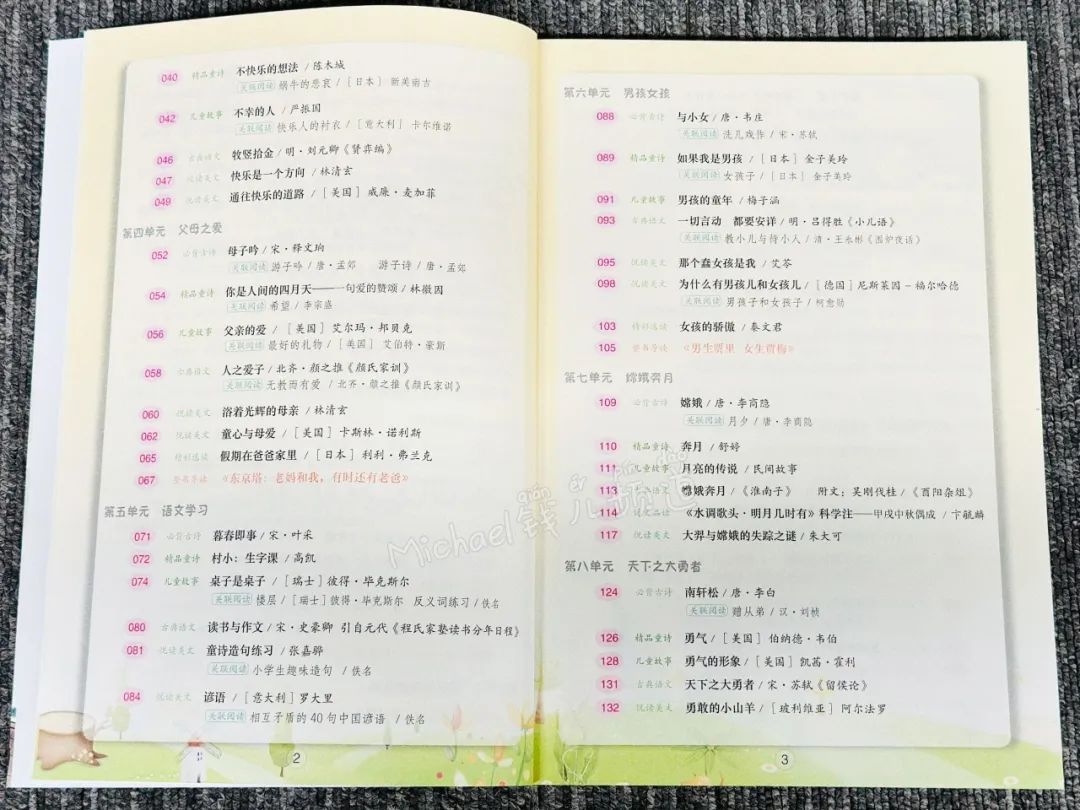 040 精品童诗 不快乐的想法 / 陈木城
关联阅读 蜗牛的悲哀 / [日本] 新美南吉
042 儿童故事 不幸的人 / 严振国
关联阅读 快乐人的衬衣 / [意大利] 卡尔维诺
046 古典语文 牧竖拾金 / 明·刘元卿《贤弈编》
047 悦读美文 快乐是一个方向 / 林清玄
049 悦读美文 通往快乐的道路 / [美国] 威廉·麦加菲
第四单元 父母之爱
052 必背古诗 母子吟 / 宋·释文珦
关联阅读 游子吟 / 唐·孟郊 游子诗 / 唐·孟郊
054 精品童诗 你是人间的四月天——一句爱的赞颂 / 林徽因
关联阅读 希望 / 李宗盛
056 儿童故事 父亲的爱 / [美国] 艾尔玛·邦贝克
关联阅读 最好的礼物 / [美国] 艾伯特·豪斯
058 古典语文 人之爱子 / 北齐·颜之推《颜氏家训》
关联阅读 无教而有爱 / 北齐·颜之推《颜氏家训》
060 悦读美文 浴着光辉的母亲 / 林清玄
062 悦读美文 童心与母爱 / [美国] 卡斯林·诺利斯
065 精彩选读 假期在爸爸家里 / [日本] 利利·弗兰克
067 整书导读 《东京塔：老妈和我，有时还有老爸》
第五单元 语文学习
071 必背古诗 暮春即事 / 宋·叶采
072 精品童诗 村小：生字课 / 高凯
074 儿童故事 桌子是桌子 / [瑞士] 彼得·毕克斯尔
关联阅读 楼层 / [瑞士] 彼得·毕克斯尔 反义词练习 / 佚名
080 古典语文 读书与作文 / 宋·史蒙卿 引自元代《程氏家塾读书分年日程》
081 悦读美文 童诗造句练习 / 张嘉骅
关联阅读 小学生趣味造句 / 佚名
084 悦读美文 谚语 / [意大利] 罗大里
关联阅读 相互矛盾的40句中国谚语 / 佚名
2
第六单元 男孩女孩
088 必背古诗 与小女 / 唐·韦庄
关联阅读 洗儿戏作 / 宋·苏轼
089 精品童诗 如果我是男孩 / [日本] 金子美玲
关联阅读 女孩子 / [日本] 金子美玲
091 儿童故事 男孩的童年 / 梅子涵
093 古典语文 一切言动 都要安详 / 明·吕得胜《小儿语》
关联阅读 教小儿与待小人 / 清·王永彬《围炉夜话》
095 悦读美文 那个蠢女孩是我 / 艾苓
098 悦读美文 为什么有男孩儿和女孩儿 / [德国] 尼斯莱因-福尔哈德
关联阅读 男孩子和女孩子 / 柯愈勋
103 精彩选读 女孩的骄傲 / 秦文君
105 整书导读 《男生贾里 女生贾梅》
第七单元 嫦娥奔月
109 必背古诗 嫦娥 / 唐·李商隐
关联阅读 月夕 / 唐·李商隐
110 精品童诗 奔月 / 舒婷
111 儿童故事 月亮的传说 / 民间故事
113 古典语文 嫦娥奔月 / 《淮南子》 附文：吴刚伐桂 / 《酉阳杂俎》
114 悦读美文 《水调歌头·明月几时有》科学注——甲戌中秋偶成 / 卞毓麟
117 悦读美文 大羿与嫦娥的失踪之谜 / 朱大可
第八单元 天下之大勇者
124 必背古诗 南轩松 / 唐·李白
关联阅读 赠从弟 / 汉·刘桢
126 精品童诗 勇气 / [美国] 伯纳德·韦伯
128 儿童故事 勇气的形象 / [美国] 凯茜·霍利
131 古典语文 天下之大勇者 / 宋·苏轼《留侯论》
132 悦读美文 勇敢的小山羊 / [玻利维亚] 阿尔法罗
3
Michael钱儿频道